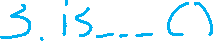 3. is___()